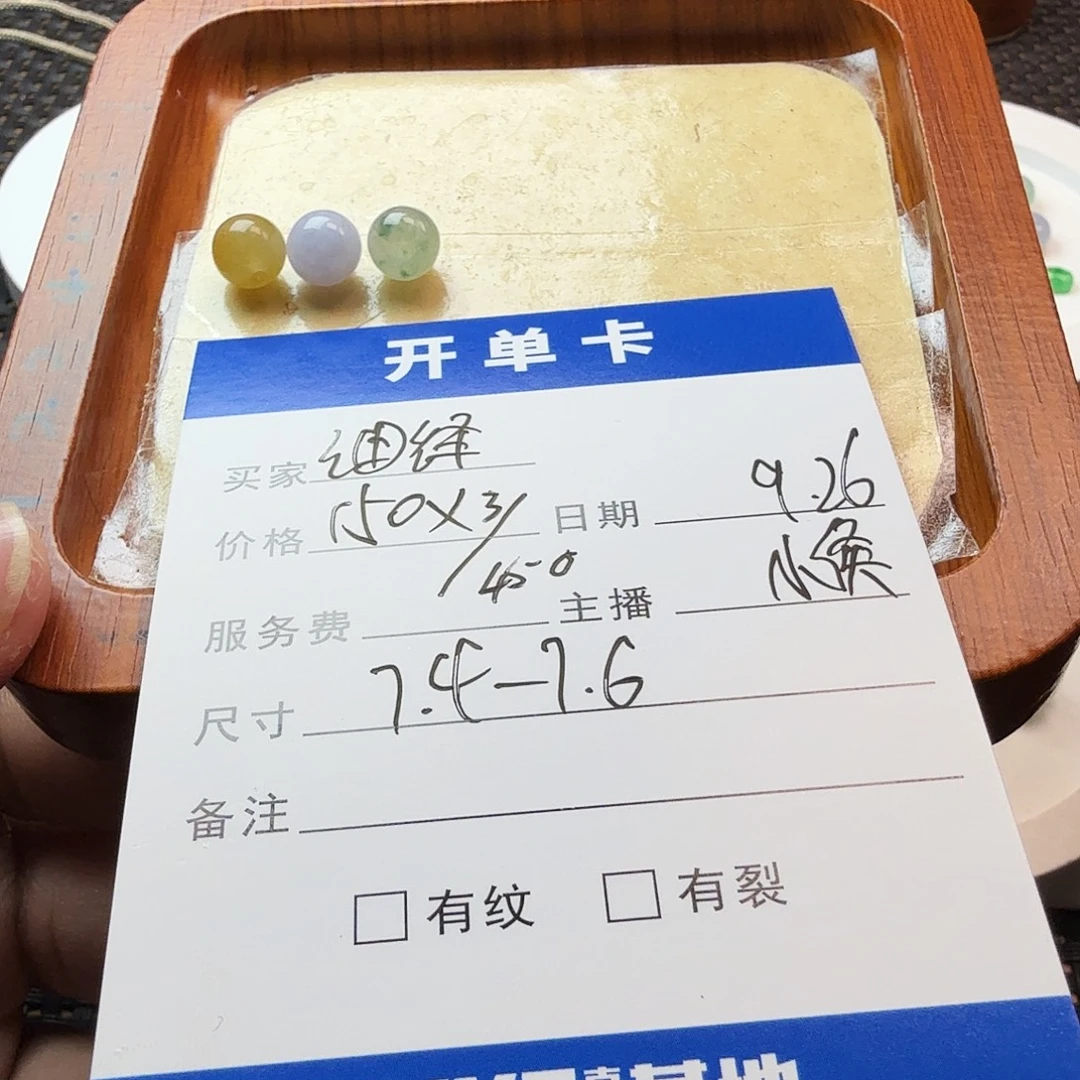 开单卡
买家
价格 150X3/ 日期 9.26
/450
服务费 主播 小
尺寸 7.4-7.6
备注
□ 有纹 □ 有裂
基地